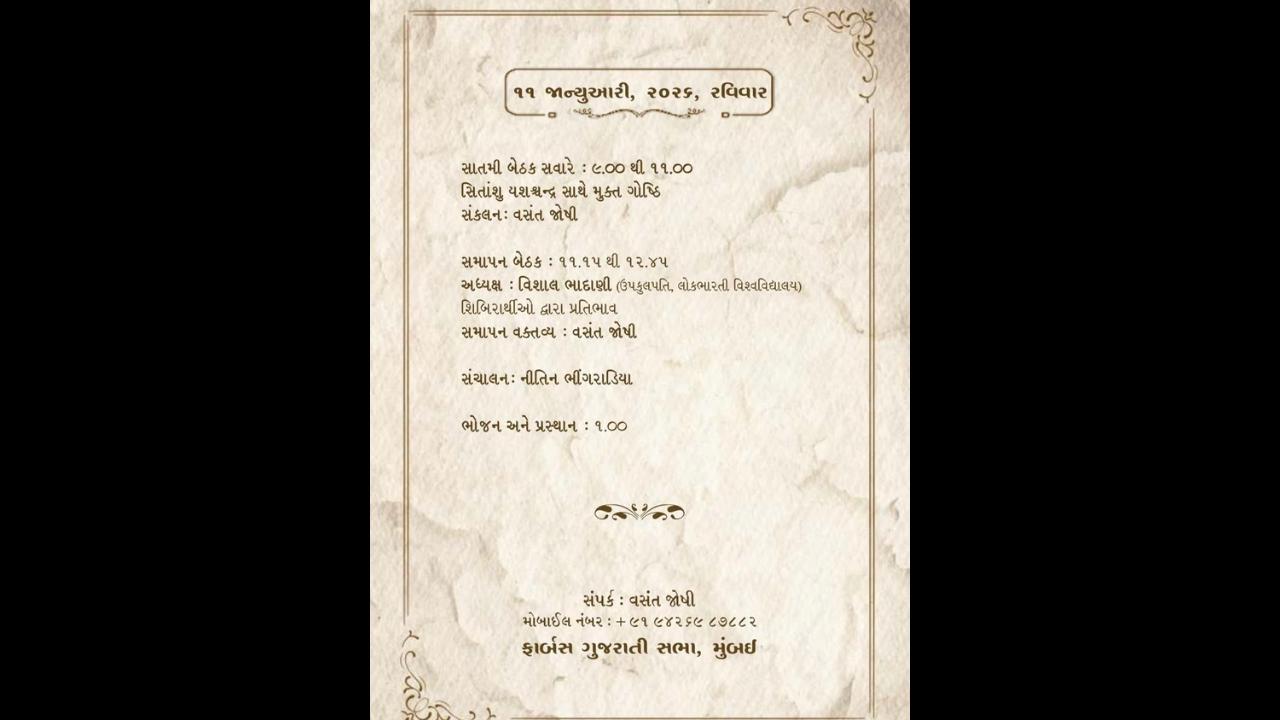 ૧૧ જાન્યુઆરી, ૨૦૨૬, રવિવાર
સાતમી બેઠક સવારે : ૯.૦૦ થી ૧૧.૦૦
સિતાંશુ યશશ્ચન્દ્ર સાથે મુક્ત ગોષ્ઠિ
સંકલન: વસંત જોષી
સમાપન બેઠક : ૧૧.૧૫ થી ૧૨.૪૫
અધ્યક્ષ : વિશાલ ભાદાણી (ઉપકુલપતિ, લોકભારતી વિશ્વવિદ્યાલય)
શિબિરાર્થીઓ દ્વારા પ્રતિભાવ
સમાપન વક્તવ્ય : વસંત જોષી
સંચાલન: નીતિન ભીંગરાડિયા
ભોજન અને પ્રસ્થાન : ૧.૦૦
સંપર્ક : વસંત જોષી
મોબાઈલ નંબર : +૯૧ ૯૪૨૬૯ ૮૭૮૮૨
ફાર્બસ ગુજરાતી સભા, મુંબઈ